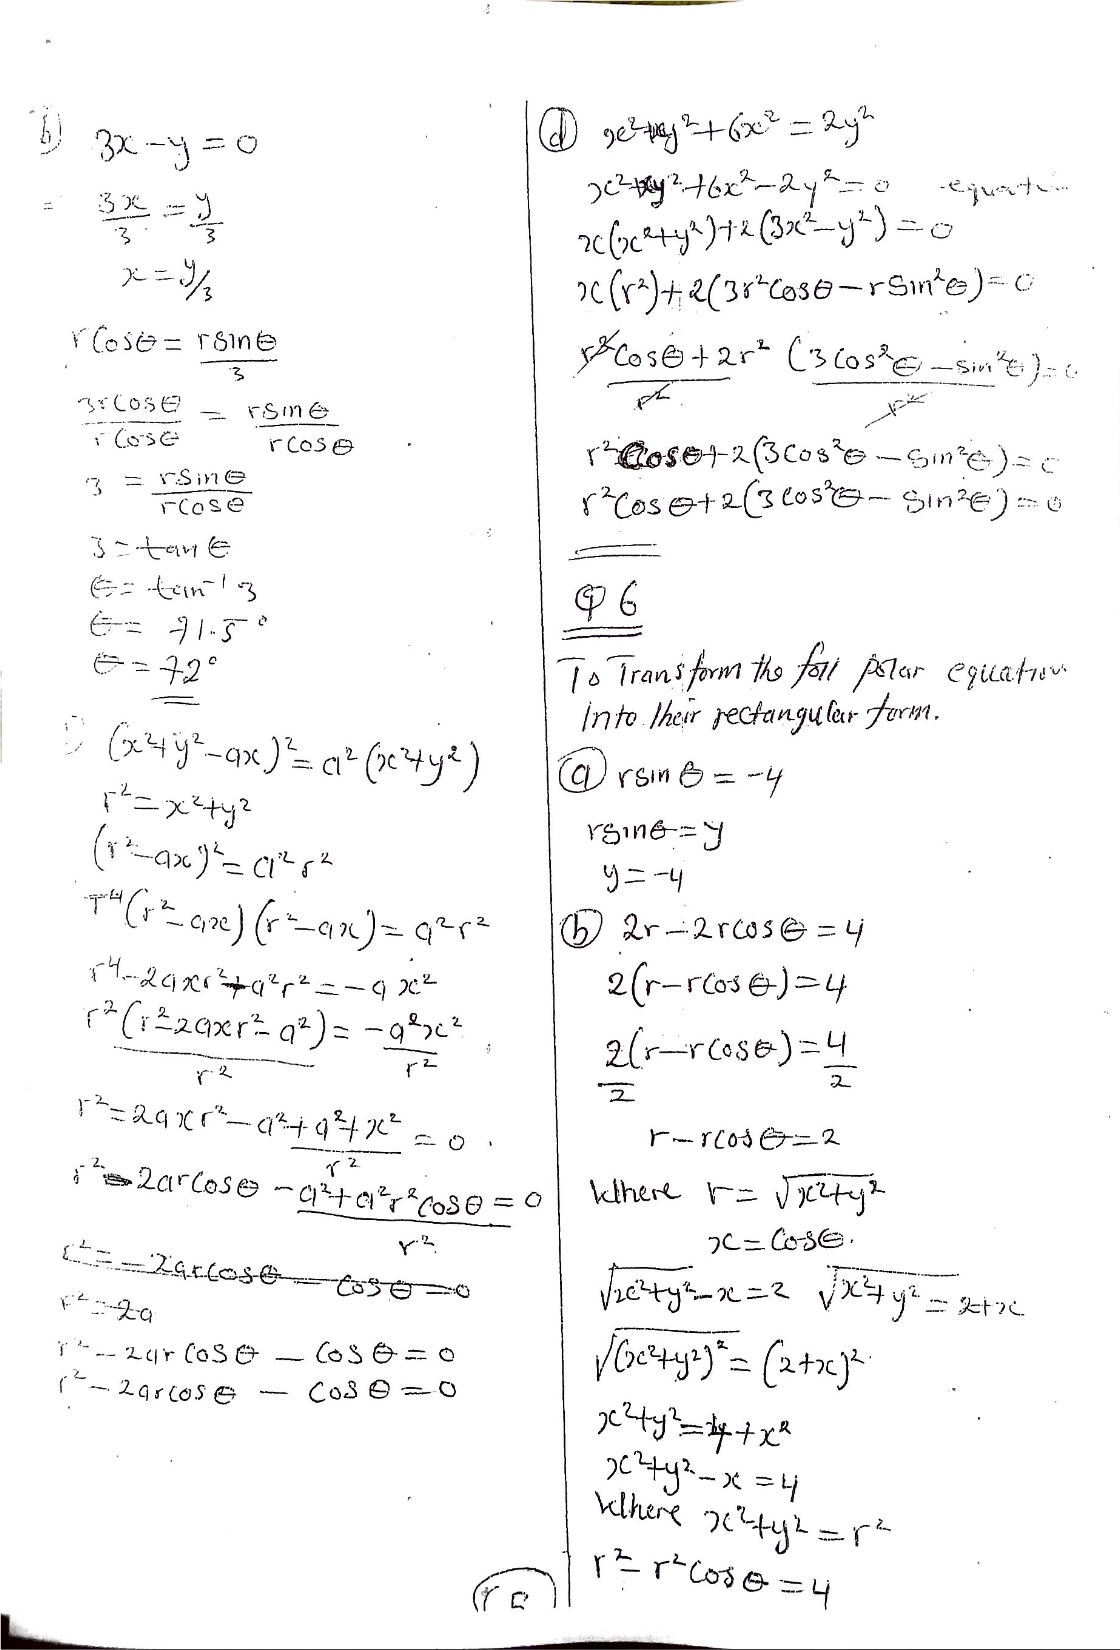 b) 3x - y = 0
= 3x/3 = y/3
x = y/3
r Cosθ = rsinθ/3
3rcosθ/rcosθ = rsinθ/rcosθ
3 = rsinθ/rcosθ
3 = tanθ
θ = tan⁻¹ 3
θ = 71.5°
θ = 72°
(x²+y²-ax)² = a²(x²+y²)
r² = x²+y²
(r²-ax)² = a²r²
(r²-ax)(r²-ax) = a²r²
r⁴-2axr²+a²r² = -ax²
r²(r²-2axr²-a²)/r² = -a²x²/r²
r² = 2axr² - a² + a²+x²/r² = 0
r² - 2arcosθ - a²+a²r²cosθ/r² = 0
r² = -2arcosθ - cosθ = 0
r² = 2a
r² - 2arcosθ - cosθ = 0
r² - 2arcosθ - cosθ = 0
(d) x²+xy²+6x² = 2y²
x²+xy²+6x²-2y² = 0
x(x²+y²)+2(3x²-y²) = 0
x(r²)+2(3r²cosθ-rsin²θ) = 0
r²cosθ+2r²/r² (3cos²θ-sin²θ)/r² = 0
r²cosθ+2(3cos²θ-sin²θ) = 0
r²cosθ+2(3cos²θ-sin²θ) = 0
Q 6
To Transform the foll polar equation
into their rectangular form.
(a) rsinθ = -4
rsinθ = y
y = -4
(b) 2r - 2rcosθ = 4
2(r-rcosθ) = 4
2(r-rcosθ)/2 = 4/2
r-rcosθ = 2
Where r = √x²+y²
x = cosθ.
√x²+y² - x = 2 √x²+y² = 2+x
√(x²+y²)² = (2+x)²
x²+y² = 4+x²
x²+y²-x = 4
Where x²+y² = r²
r² - r²cosθ = 4